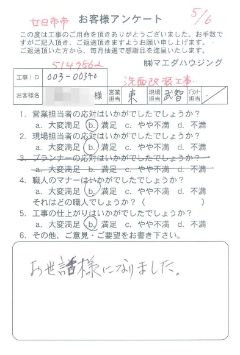 廿日市市
お客様アンケート
5/6
この度は工事のご用命を頂きありがとうございました。お手数で
すがご記入頂き、ご返送頂きますようお願い申し上げます。
ご返送頂いた方から、毎月抽選で感謝日を進呈いたします。
㈱マエダハウジング
工事ID 003-00390
洗面改修工事
お客様名 様 営業担当 東 現場担当 武智 プランナー担当
1. 営業担当者の応対はいかがでしたでしょうか?
a. 大変満足 b. 満足 c. やや不満 d. 不満
2. 現場担当者の応対はいかがでしたでしょうか?
a. 大変満足 b. 満足 c. やや不満 d. 不満
3. プランナーの応対はいかがでしたでしょうか?
a. 大変満足 b. 満足 c. やや不満 d. 不満
4. 職人のマナーはいかがでしたでしょうか?
a. 大変満足 b. 満足 c. やや不満 d. 不満
それはどの職人でしょうか?( )
5. 工事の仕上がりはいかがでしたでしょうか?
a. 大変満足 b. 満足 c. やや不満 d. 不満
6. その他、ご意見・ご要望をお書き下さい。
お世話様になりました。